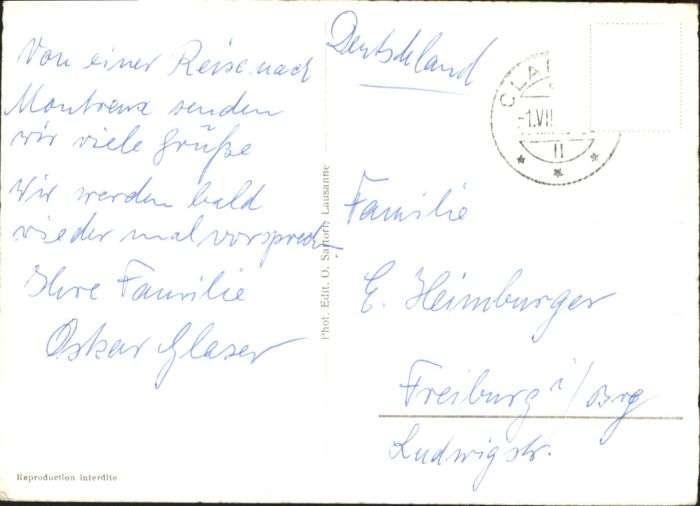 Von einer Reise nach
Montreux senden
wir viele Grüße
Wir werden bald
wieder mal vorsprechen
Ihre Familie
Oskar Glaser
Reproduction interdite
Phot. Edit. O. Sartori, Lausanne
Deutschland
CLA
-1.VII
II
Familie
E. Heimburger
Freiburg i/Brg
Ludwigstr.